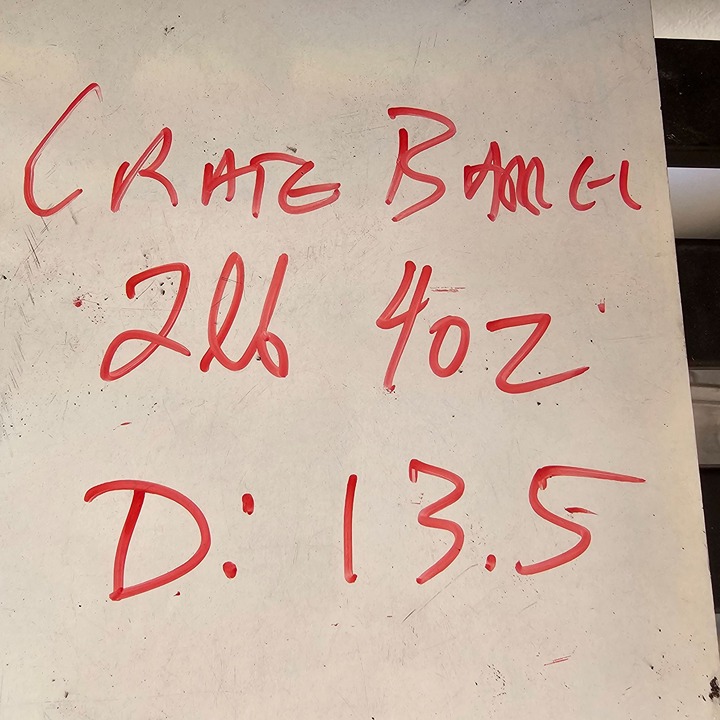 CRATE BARREL
2lb 4oz
D: 13.5